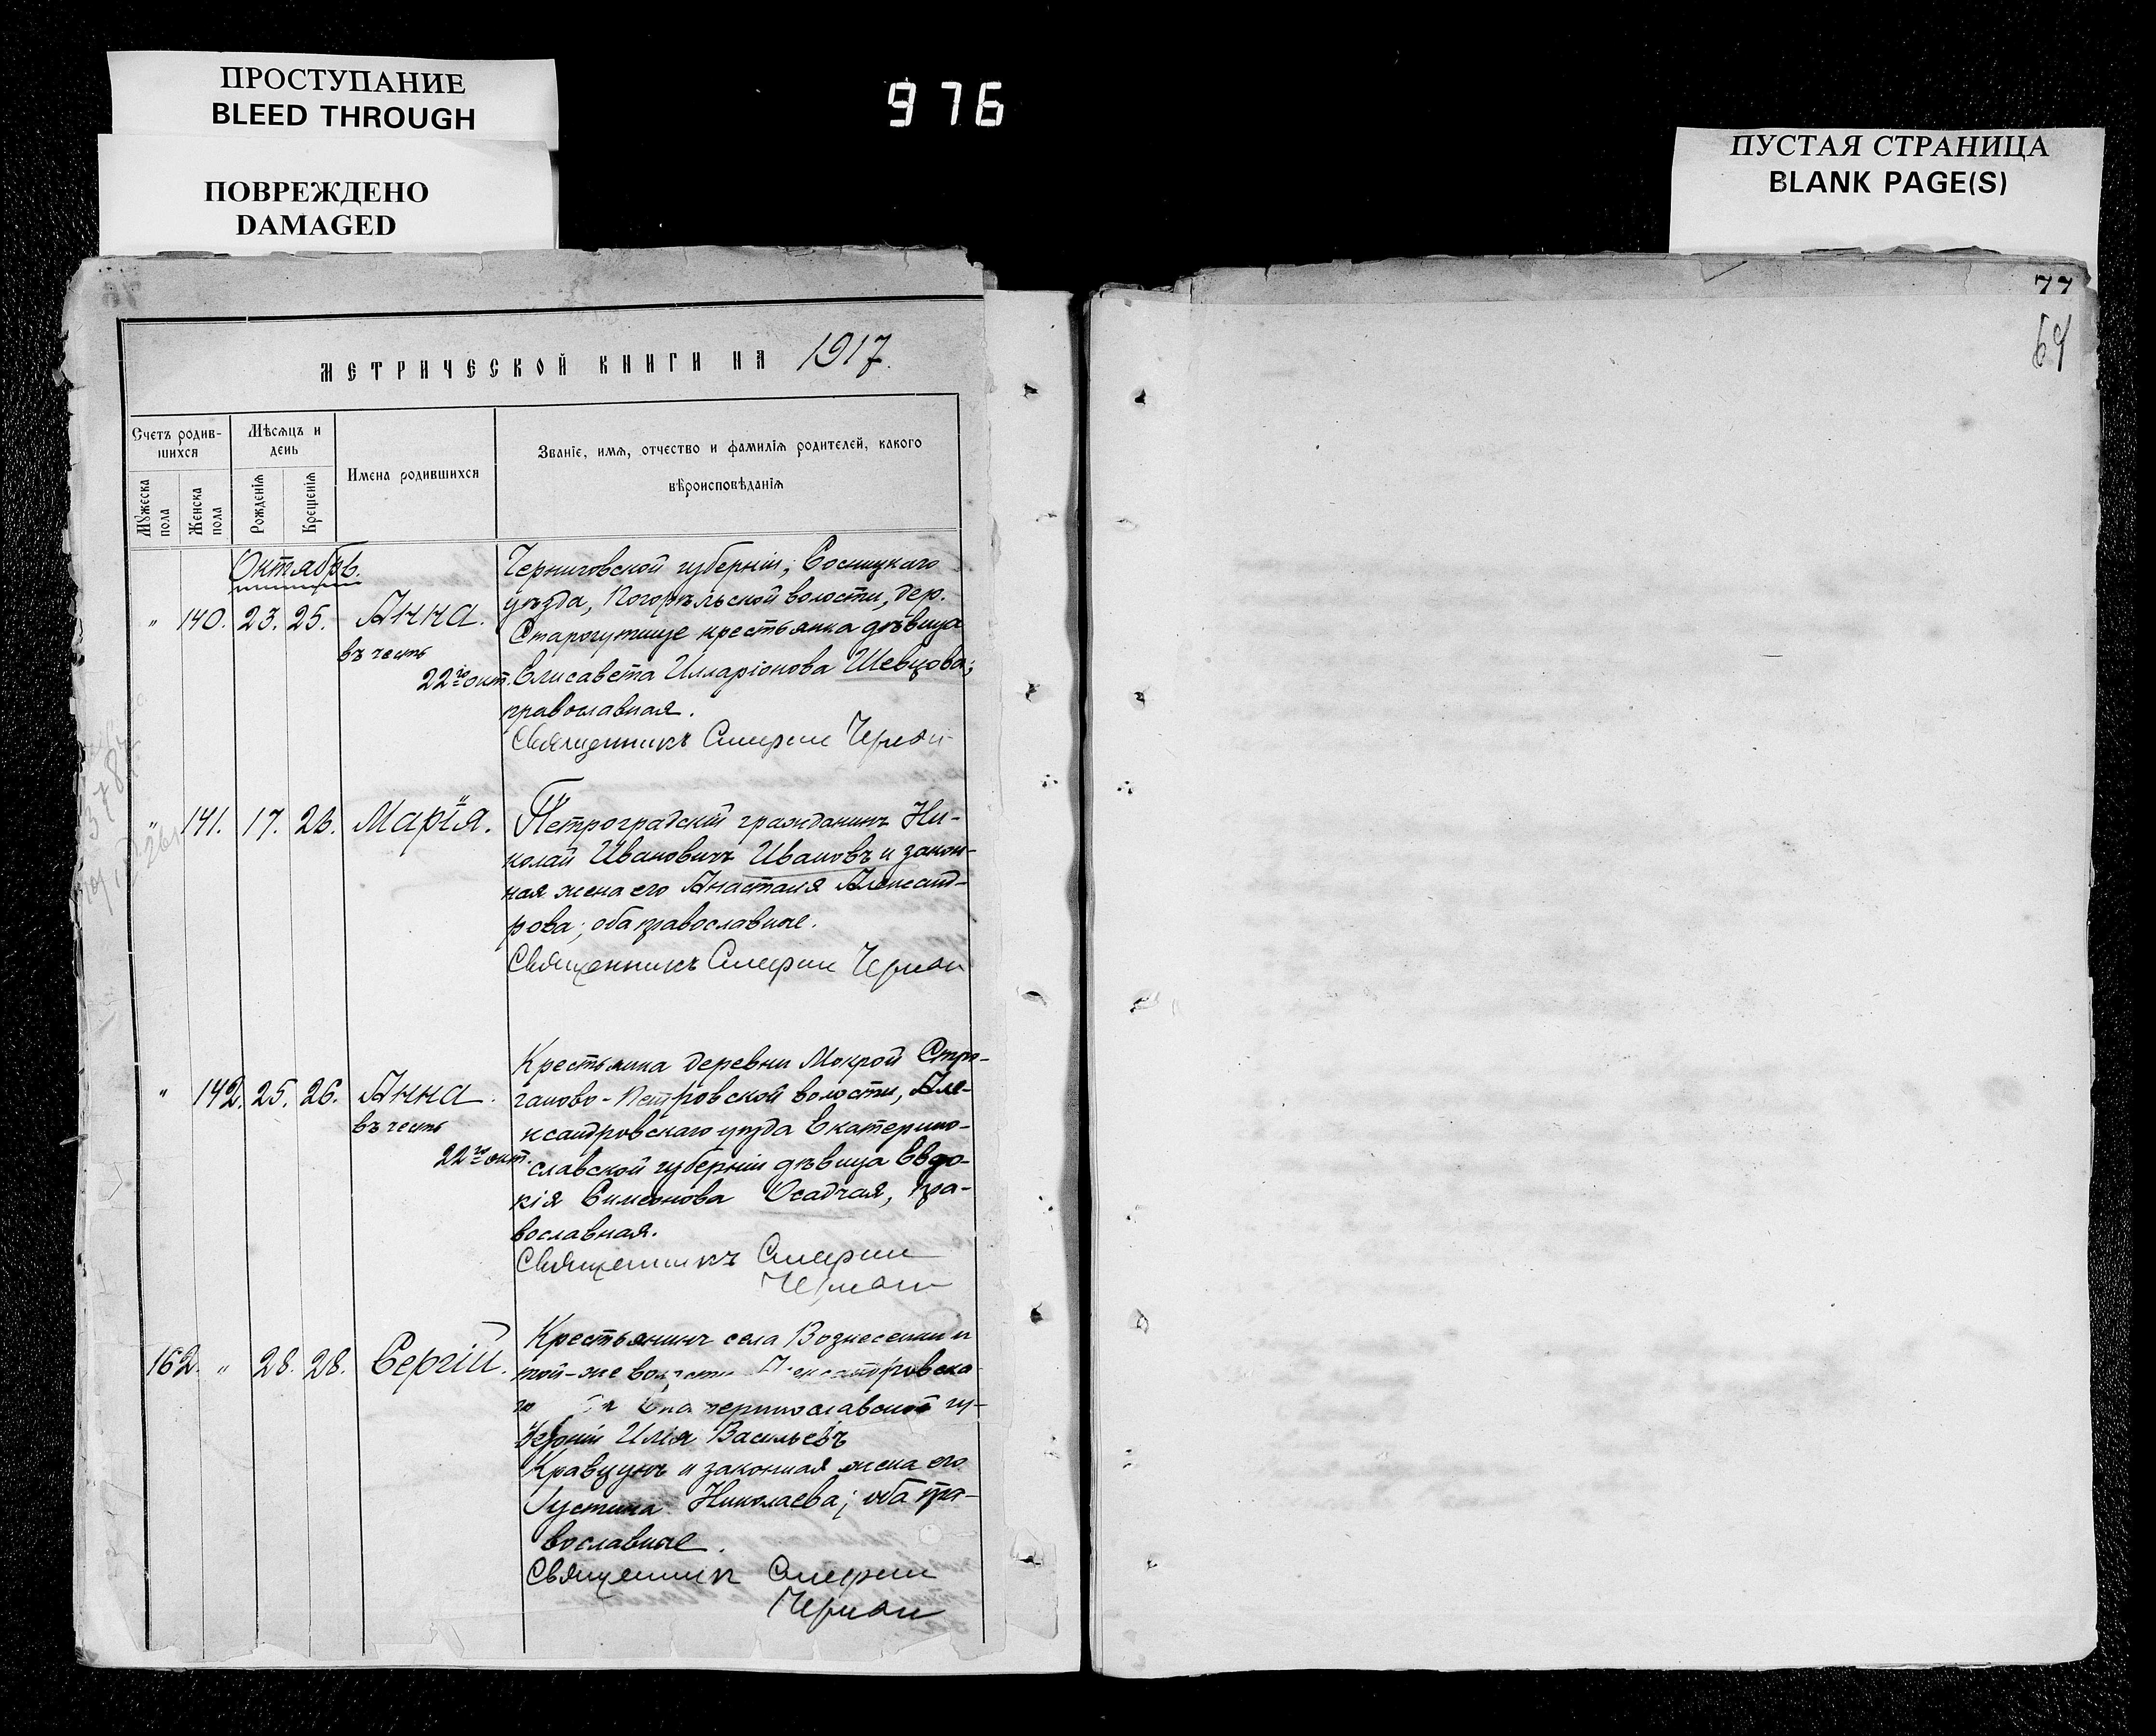 ПРОСТУПАНИЕ
BLEED THROUGH
ПОВРЕЖДЕНО
DAMAGED
976
ПУСТАЯ СТРАНИЦА
BLANK PAGE(S)
77
69
МЕТРИЧЕСКОЙ КНИГИ НА 1917.
Счетъ родив-
шихся
Мѣсяцъ и
день
Имена родившихся
Званіе, имя, отчество и фамилія родителей, какого
вѣроисповѣданія
Мужеска
пола
Женска
пола
Рожденія
Крещенія
Октябрь.
" 140. 23. 25. Анна.
въ честь
22го окт.
Черниговской губерніи, Сосницкаго
уѣзда, Погорѣльской волости, дер.
Старогутище крестьянка дѣвица
Елисавета Илларіонова Шевцова;
православная.
Священникъ
" 141. 17. 26. Марія.
Петроградскій гражданинъ Ни-
колай Ивановичъ Ивановъ и закон-
ная жена его Анастасія Александ-
рова; оба православные.
Священникъ
" 142. 25. 26. Анна.
въ честь
22го окт.
Крестьянка деревни Мокрой
Петровской волости, Але-
ксандровскаго уѣзда Екатерино-
славской губерніи дѣвица Евдо-
кія Симеонова Осадчая, пра-
вославная.
Священникъ
162. " 28. 28. Сергій.
Крестьянинъ села Вознесенки
той-же волости Александровска-
го Екатеринославской гу-
берніи Илія Васильевъ
Кравцунъ и законная жена его
Іустина Николаева; оба пра-
вославные.
Священникъ